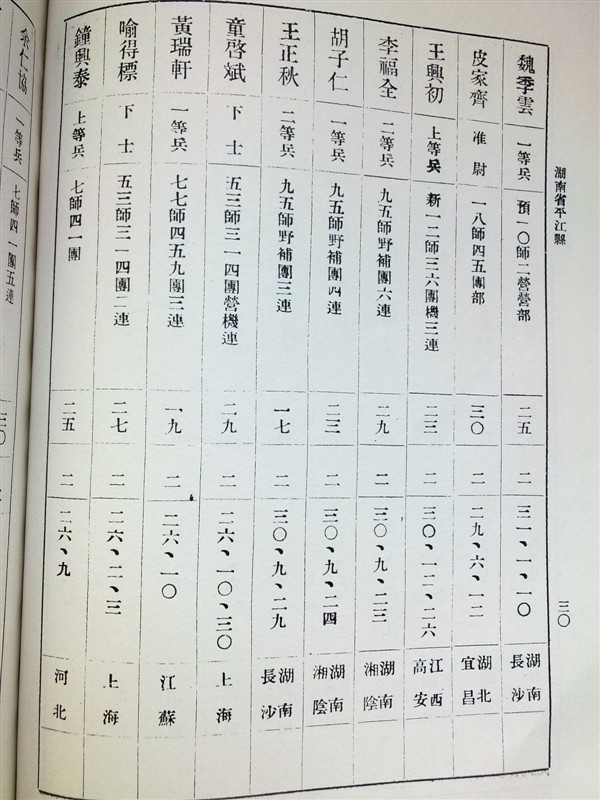 湖南省平江縣
三〇
魏季雲 一等兵 預一〇師二營營部 二五 二 三一、一、一〇 湖南長沙
皮家齊 准尉 一八師四五團部 三〇 二 二九、六、一二 湖北宜昌
王興初 上等兵 新一二師三六團機三連 二三 二 三〇、一二、二六 江西高安
李福全 二等兵 九五師野補團六連 二九 二 三〇、九、二三 湖南湘陰
胡子仁 一等兵 九五師野補團四連 二三 二 三〇、九、二四 湖南湘陰
王正秋 二等兵 九五師野補團三連 一七 二 三〇、九、二九 湖南長沙
童啓斌 下士 五三師三一四團營機連 二九 二 二六、一〇、三〇 上海
黃瑞軒 一等兵 七七師四五九團三連 一九 二 二六、一〇 江蘇
喻得標 下士 五三師三一四團二連 二七 二 二六、二、三 上海
鐘興泰 上等兵 七師四一團 二五 二 二六、九 河北
余仁協 一等兵 七師四一團五連 三〇